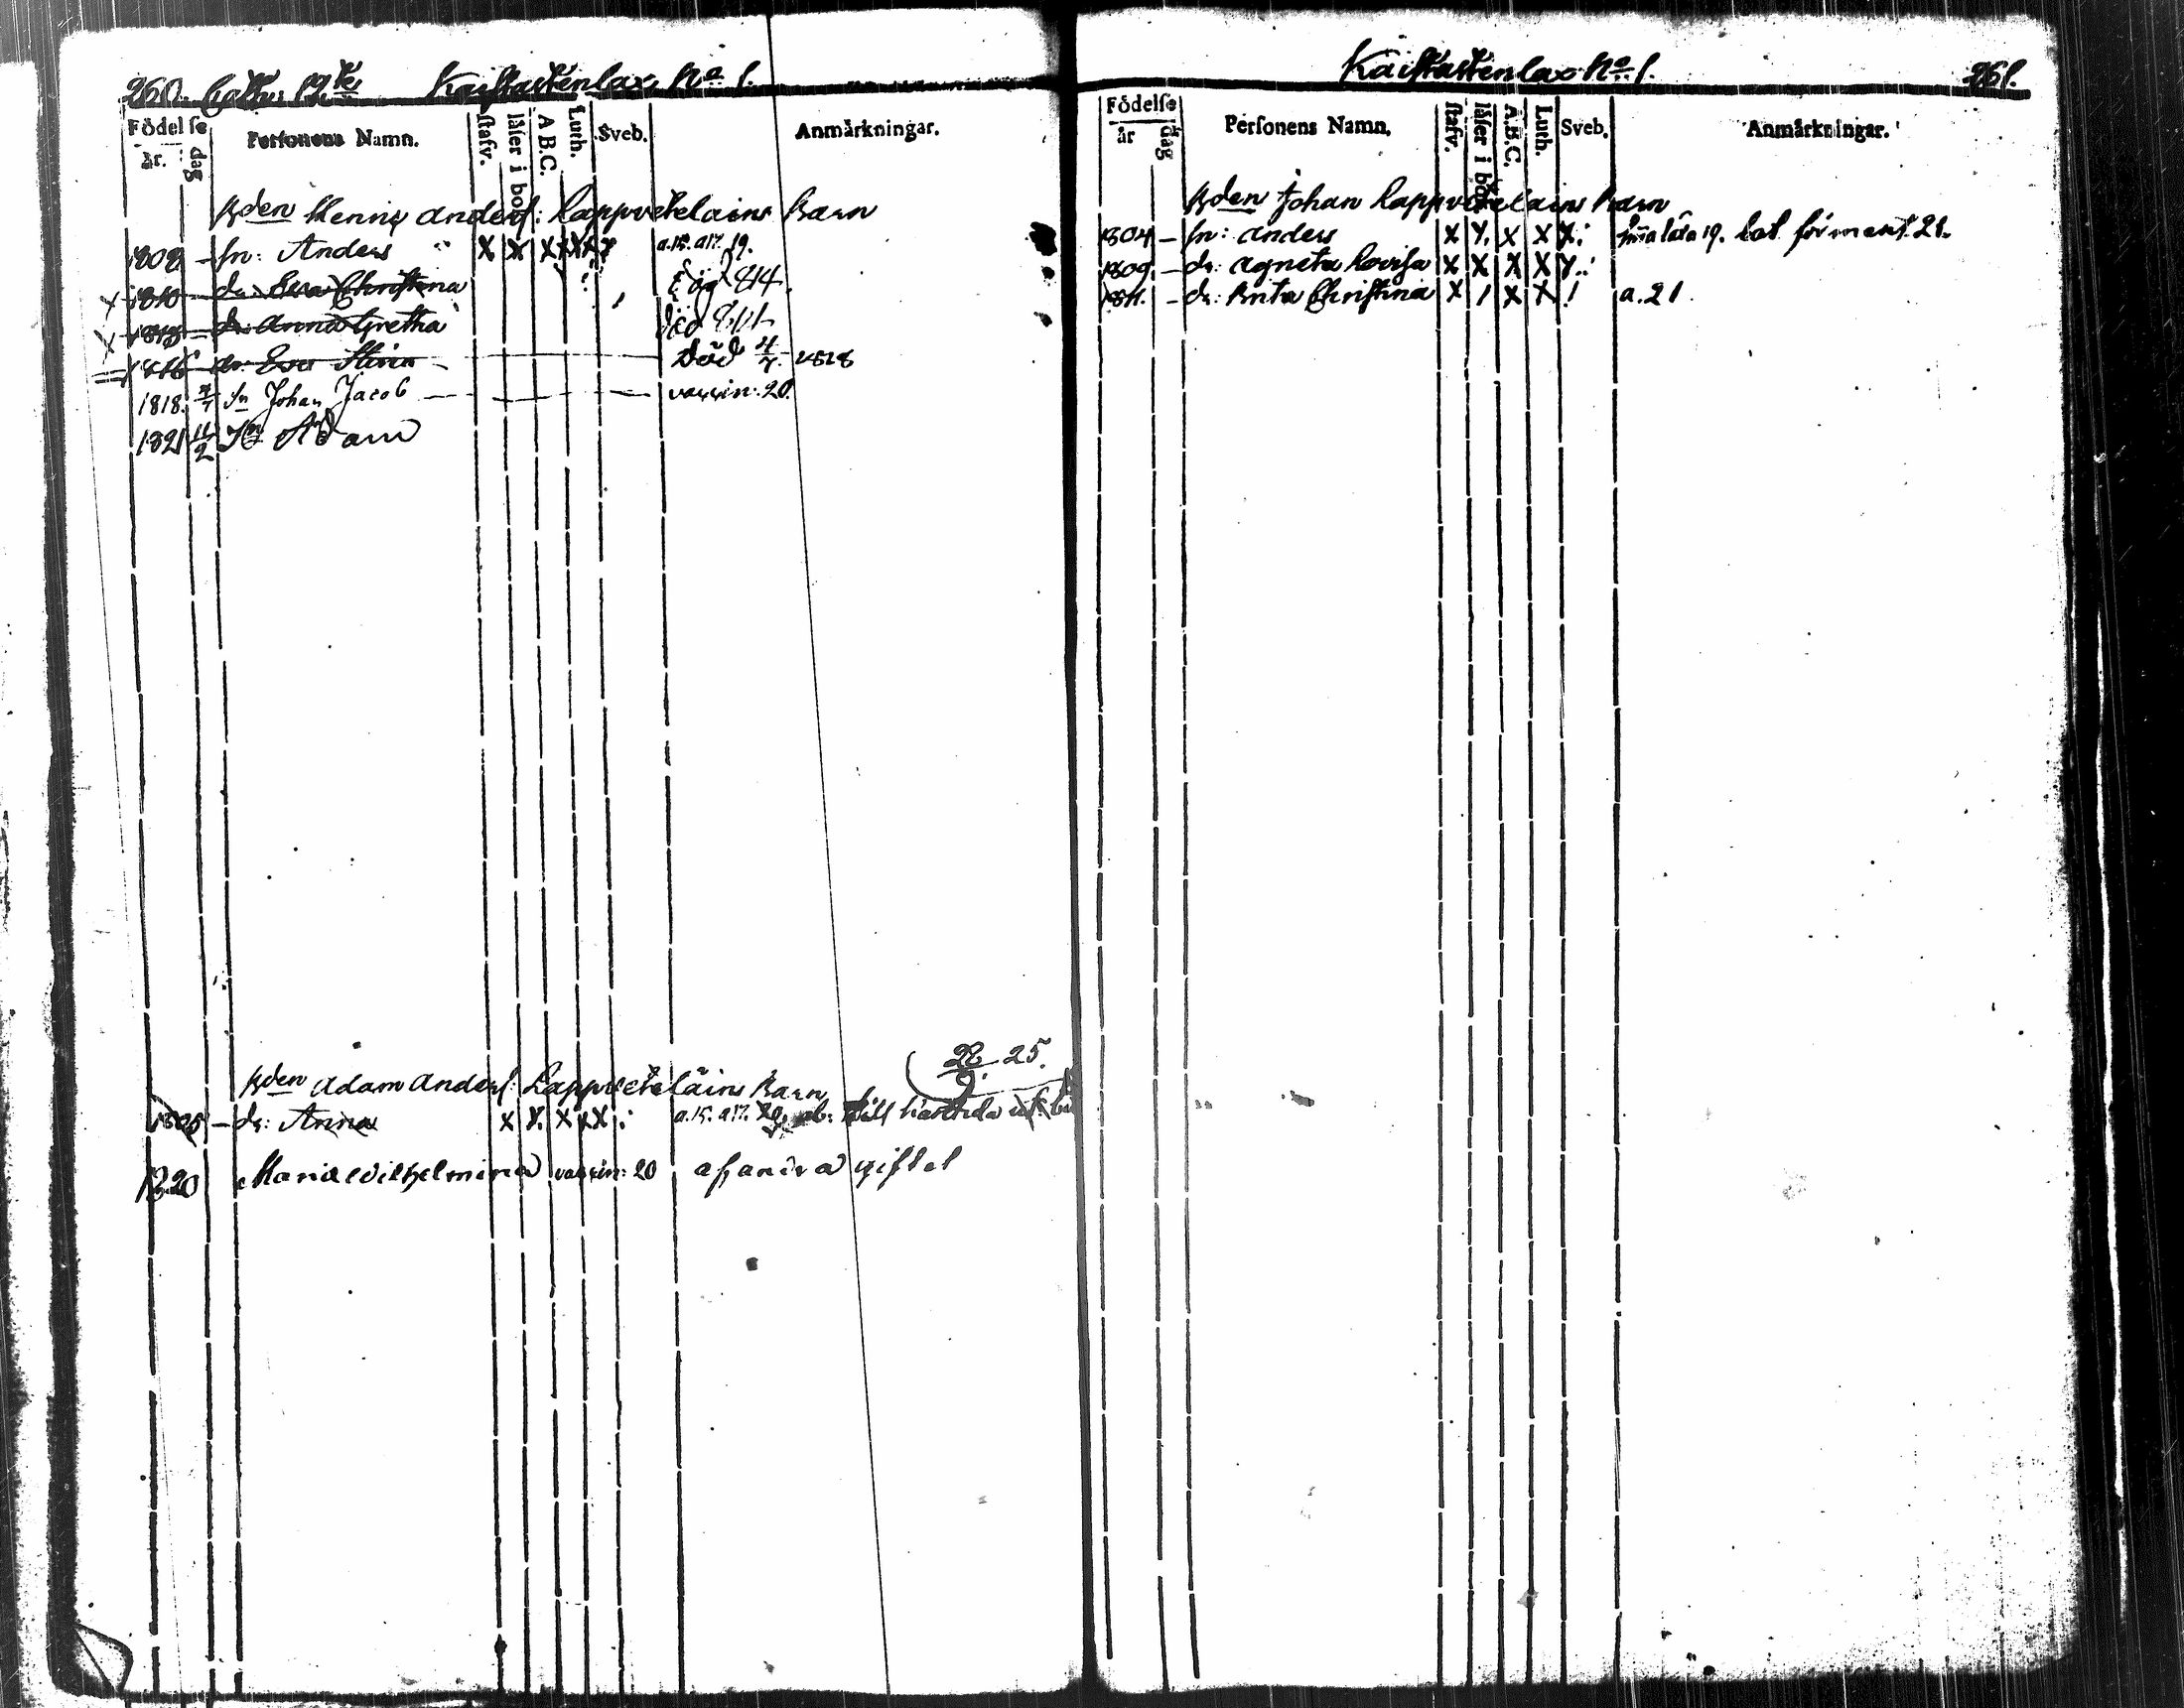 260. Cath: 19te Kaistastenlax No 1.
Födelse
år. dag Personens Namn. stafv. läser i bok A B.C. Luth. Sveb. Anmärkningar.
Bden Henric Anders: Lappvetelains Barn
1808 – sn: Anders X X X X X X a.15. a17. 19.
1810 dr: Ewa Christina död 814.
1813 – dr: Anna Gretha död 814
1816 dr: Ewa Stina – död 4/7. 1818
1818. 7/7 Sn Johan Jacob – vaccin: 20.
1821 11/2 Sn Adam
Bden Adam Anders: Lappveteläins Barn 22/9. 25.
1805 – dr: Anna X X. X X X : a.15. a17. 20. till
1820 Maria Wilhelmina vaccin: 20 af andra giftet
Kaistastenlax No 1. 261.
Födelse
år dag Personens Namn. stafv. läser i bok A.B.C. Luth. Sveb. Anmärkningar.
Bden Johan Lappvetelains Barn
1804 – sn: Anders X X. X X X: läsa 19. 21.
1809. – dr: Agneta Lovisa X X X X X..
1811. – dr: Brita Christina X / X X / a. 21